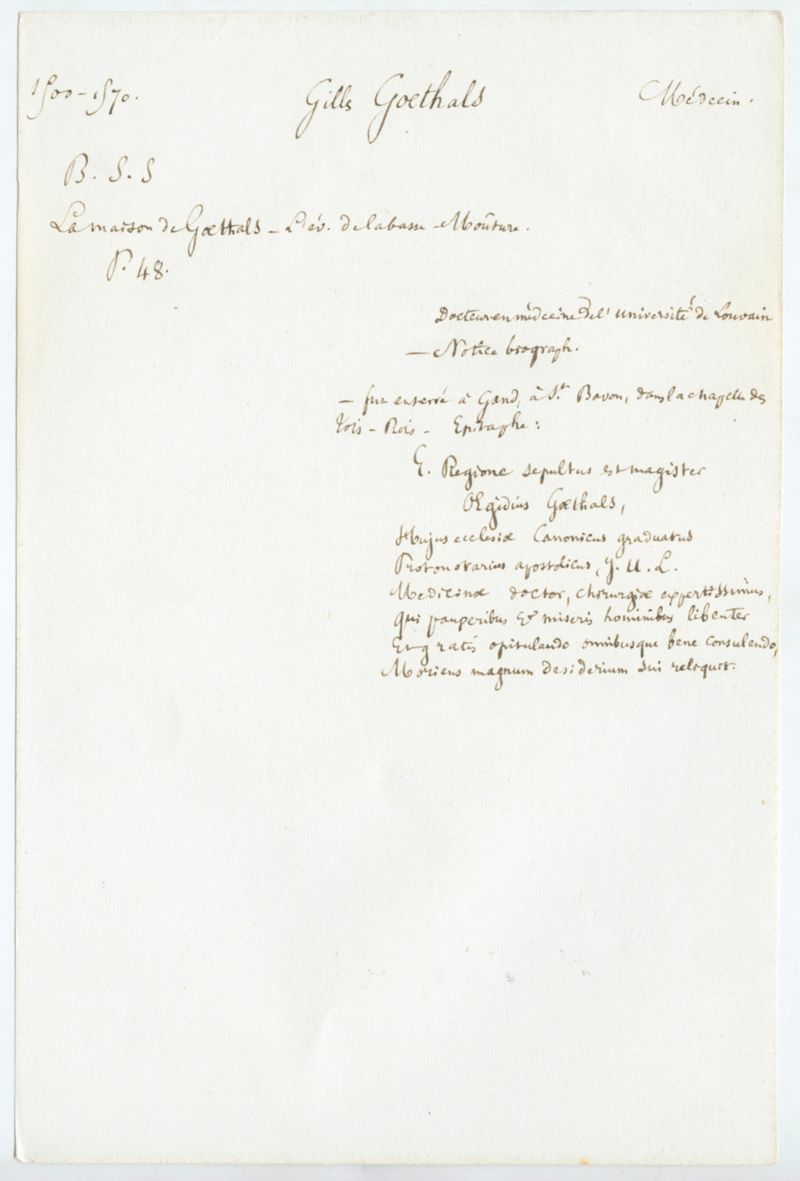 1500-1570. Gills Goethals Médecin.
B. S. S
La maison de Goethals – Liév. de la basse-Moûture.
P. 48.
Docteur en médecine de l'université de Louvain
— Notice biograph.
— fut enterré à Gand, à St. Bavon, dans la chapelle des
trois-Rois – Epitaphe:
E. Regione sepultus est magister
Œgidius Goethals,
Hujus ecclesiæ Canonicus graduatus
Protonotarius apostolicus, J. U. L.
Medicinæ doctor, chirurgiæ expertissimus,
qui pauperibus & miseris hominibus libenter
Et gratis opitulando omnibusque bene consulendo,
Moriens magnum desiderium sui reliquit.